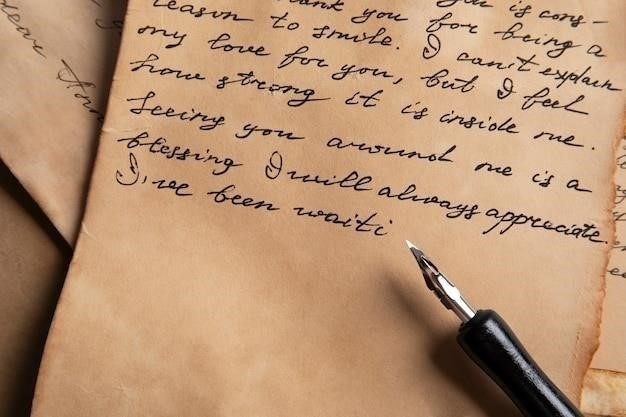 is cons-
hank you for being a
reason to smile. I can't explain
my love for you, but I feel
how strong it is inside me.
Seeing you around me is a
blessing I will always appreciate.
I've been waiti
Dear Ann